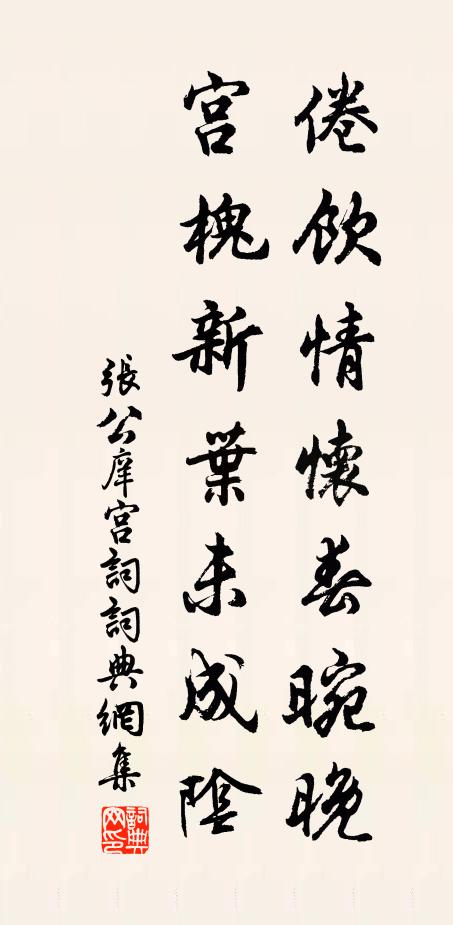 倦飲情懷春晼晚
宮槐新葉未成陰
張公庠宮詞詞典網集
詞典網印